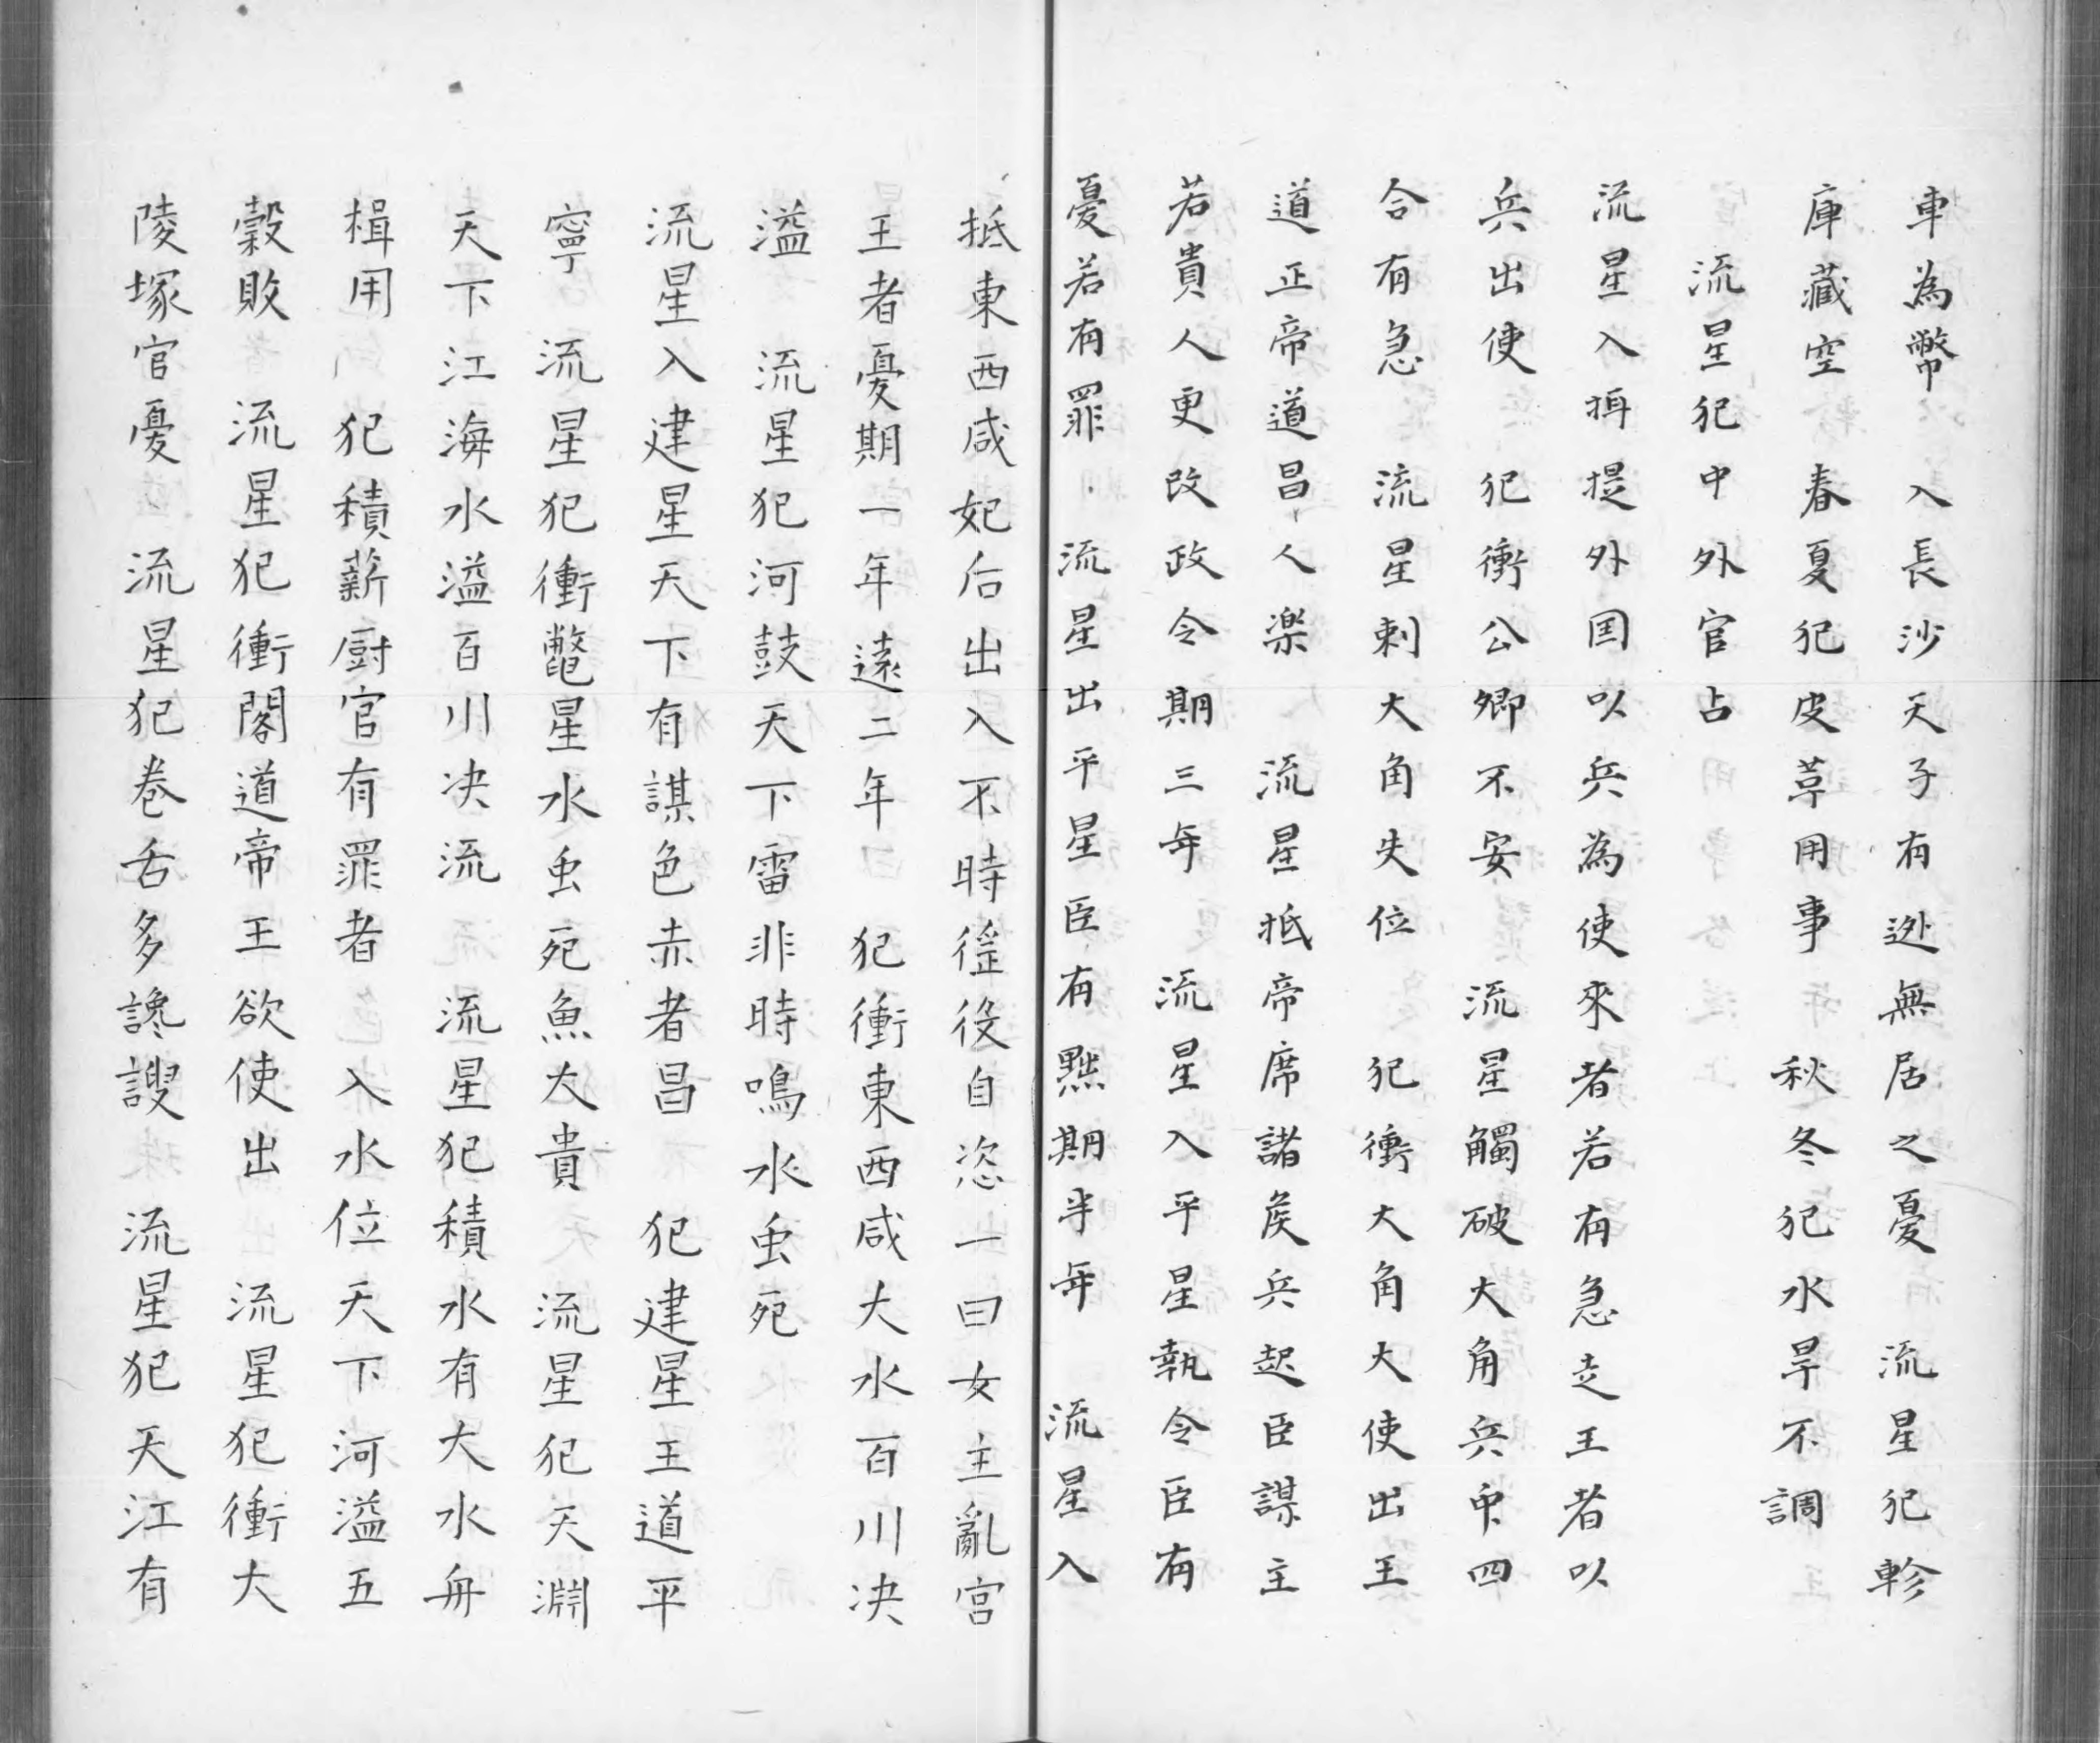 車為幣　入長沙天子有逃無居之憂　流星犯軫
庫藏空　春夏犯皮草用事　秋冬犯水旱不調
流星犯中外官占
流星入捐提外国以兵為使來者若有急走王者以
兵出使　犯衝公卿不安　流星觸破大角兵中四
合有急　流星刺大角失位　犯衝大角大使出王
道正帝道昌人楽　流星抵帝席諸侯兵起臣謀主
若貴人更改政令期三年　流星入平星執令臣有
憂若有罪　流星出平星臣有黙期半年　流星入
抵東西咸妃后出入不時徭役自恣一曰女主亂宮
王者憂期一年遠二年　犯衝東西咸大水百川决
溢　流星犯河鼓天下雷非時鳴水虫死
流星入建星天下有謀色赤者昌　犯建星王道平
寧　流星犯衝鼈星水虫死魚大貴　流星犯天淵
天下江海水溢百川决流　流星犯積水有大水舟
楫用　犯積薪厨官有罪者　入水位天下河溢五
穀敗　流星犯衝閣道帝王欲使出　流星犯衝大
陵塚官憂　流星犯巻舌多讒謖　流星犯天江有